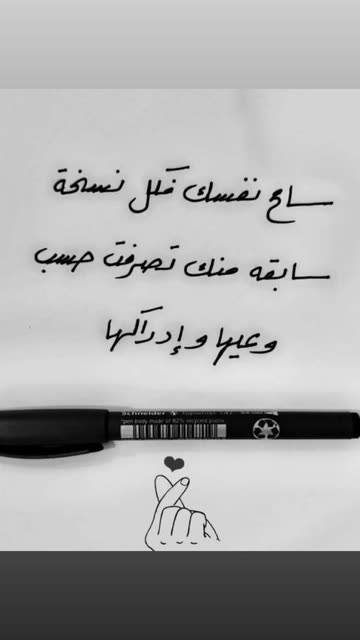 سامح نفسك فكل نسخة
سابقه منك تصرفت حسب
وعيها وإدراكها
Schneider
*pen body made of 92% recycled plastic